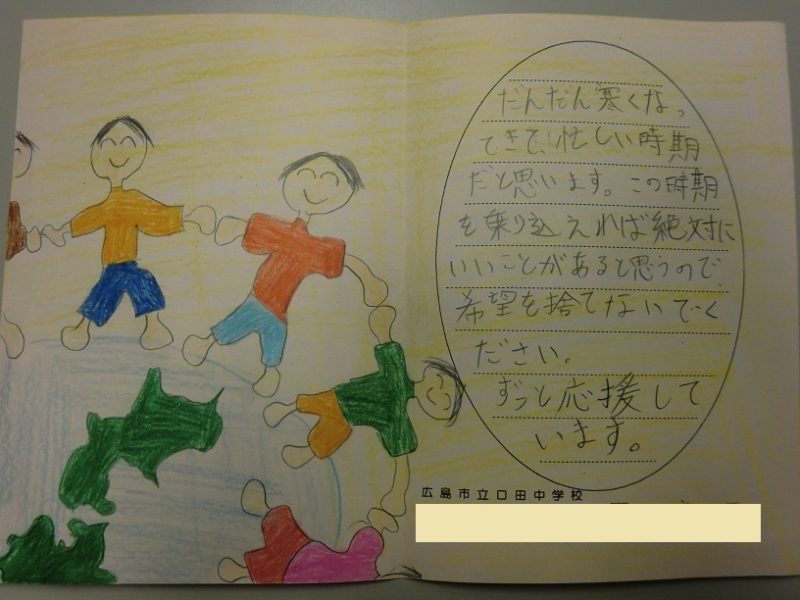 だんだん寒くなっ
てきて、忙しい時期
だと思います。この時期
を乗り込えれば絶対に
いいことがあると思うので
希望を捨てないでく
ださい。
ずっと応援して
います。
広島市立口田中学校